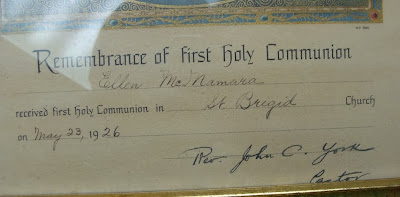 Remembrance of First Holy Communion
Ellen McNamara
received first Holy Communion in St Bregid Church
on May 23, 1926
Rev. John C. York
Pastor